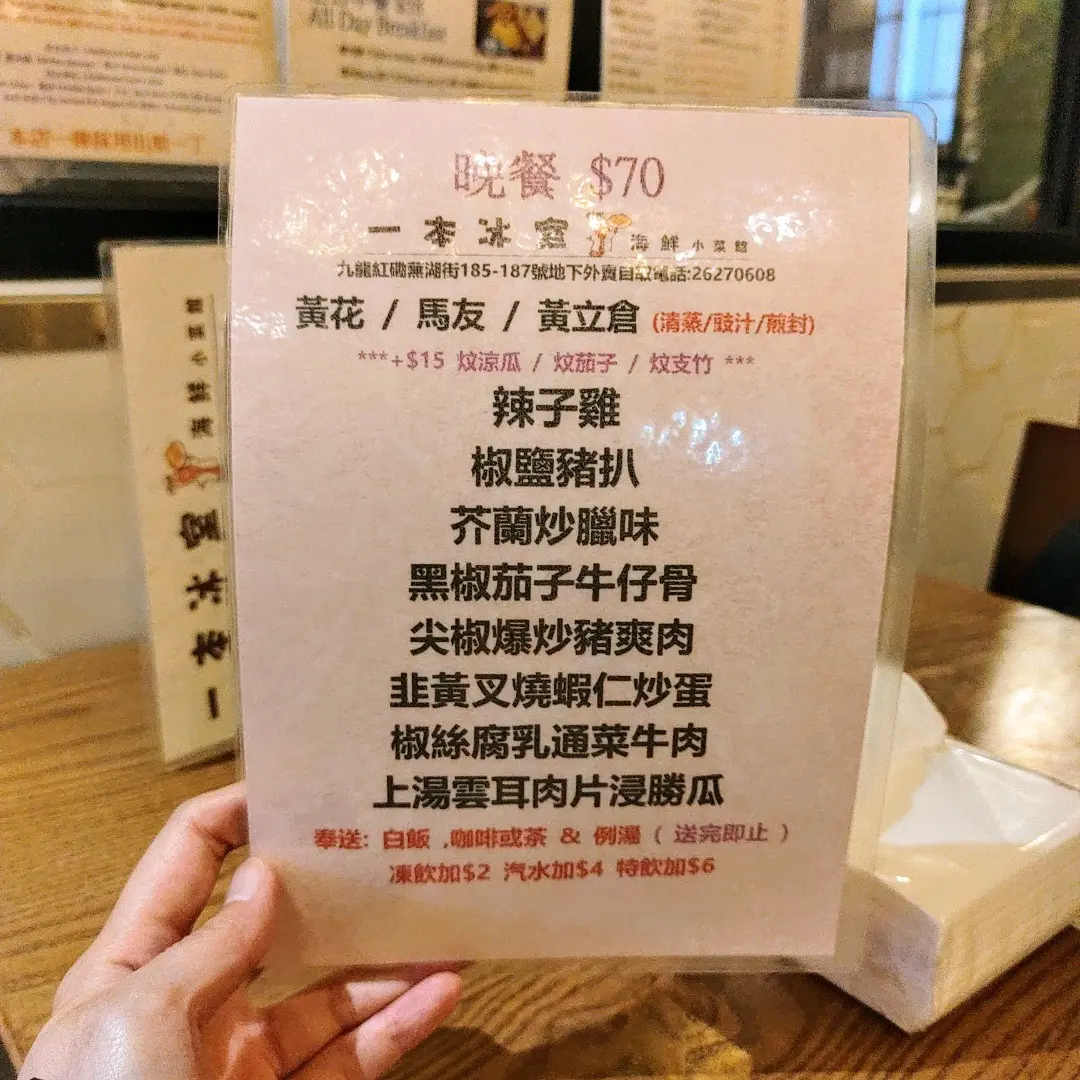 All Day Breakfast
晚餐 $70
一本冰室 海鮮小菜館
九龍紅磡蕪湖街185-187號地下外賣自取電話:26270608
黃花 / 馬友 / 黃立倉 (清蒸/豉汁/煎封)
***+$15 炆涼瓜 / 炆茄子 / 炆支竹 ***
辣子雞
椒鹽豬扒
芥蘭炒臘味
黑椒茄子牛仔骨
尖椒爆炒豬爽肉
韭黃叉燒蝦仁炒蛋
椒絲腐乳通菜牛肉
上湯雲耳肉片浸勝瓜
奉送: 白飯 ,咖啡或茶 & 例湯 ( 送完即止 )
凍飲加$2 汽水加$4 特飲加$6
一本冰室 海鮮小菜館